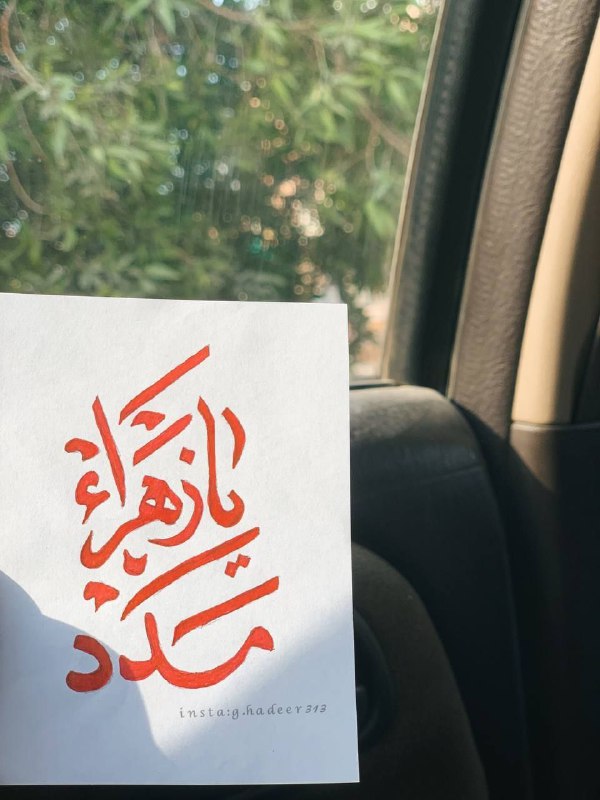 يا زهراء
مدد
insta:g.hadeer313